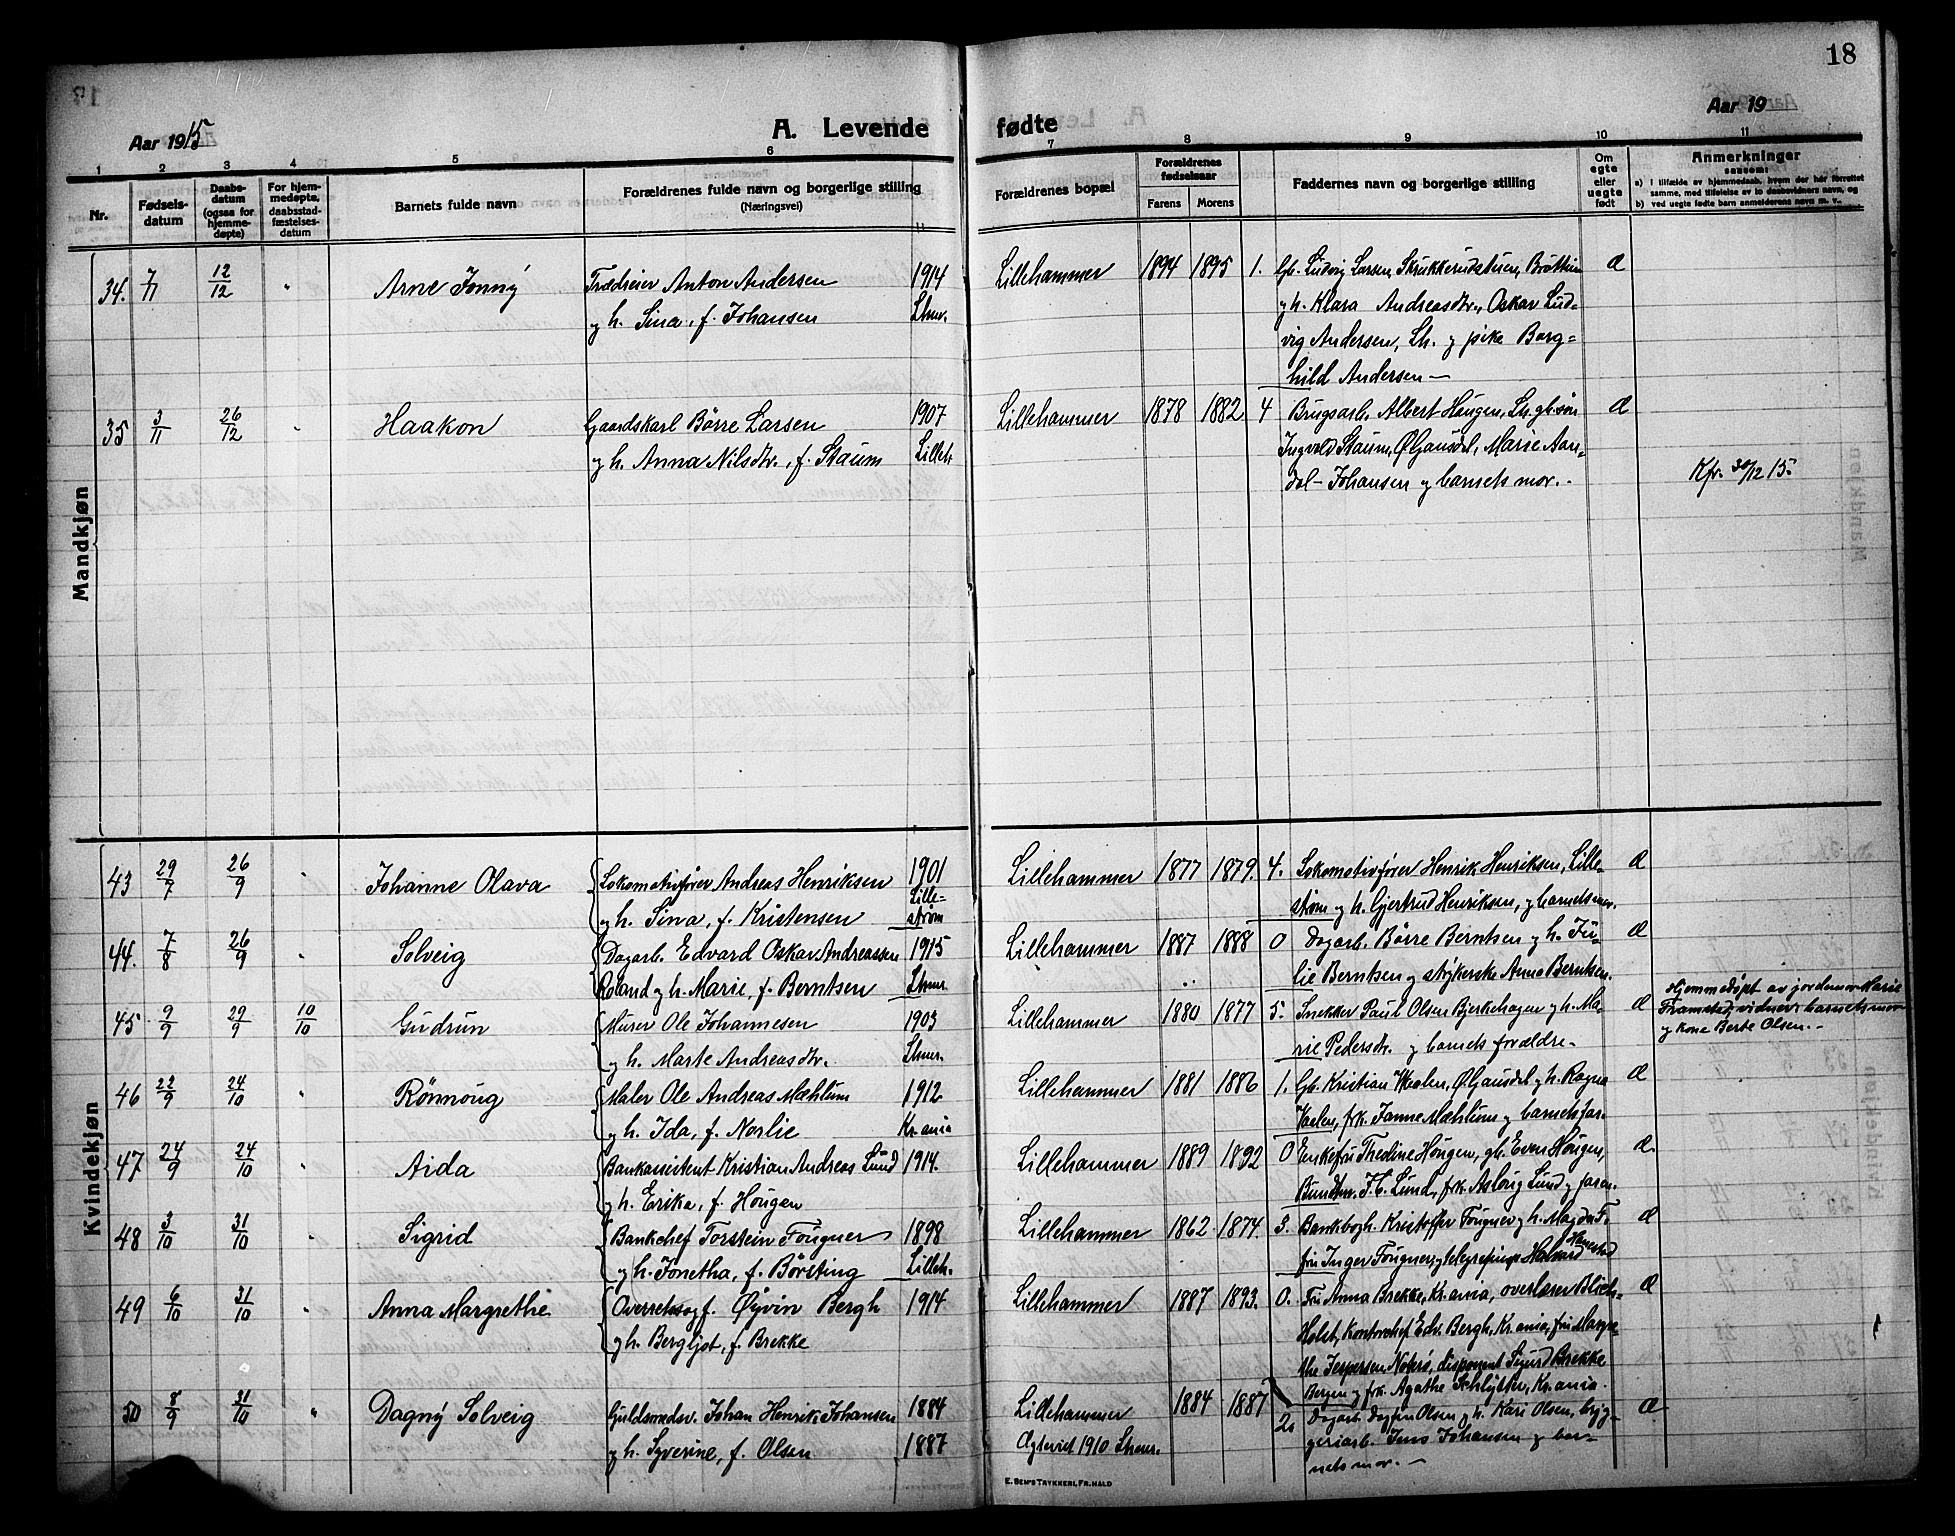 18
Aar 1915
A. Levende
fødte
Aar 19
1 2 3 4 5 6 7 8 9 10 11
Nr.
Fødsels-
datum
Daabs-
datum
(ogsaa for
hjemme-
døpte)
For hjem-
medøpte,
daabsstad-
fæstelses-
datum
Barnets fulde navn
Forældrenes fulde navn og borgerlige stilling
(Næringsvei)
Forældrenes bopæl
Forældrenes
fødselsaar
Farens Morens
Faddernes navn og borgerlige stilling
Om
egte
eller
uegte
født
Anmerkninger
saasom:
a) i tilfælde av hjemmedaab, hvem der har forrettet
samme, med tilføielse av to daabsvidners navn, og
b) ved uegte fødte barn anmelderens navn m. v..
Mandkjøn
34. 7/11 12/12 " Arne Jonny
Trædreier Anton Andersen 1914
og h. Sina, f. Johansen Lhmr.
Lillehammer 1894 1895 1.
Gb. Ludvig Larsen, Skrukkerudstuen, Brøttum
og h. Klara Andreasdtr., Oskar Lud-
vig Andersen, Lh. og pike Borg=
hild Andersen —
Æ
35 3/11 26/12 " Haakon
Gaardskarl Børre Larsen 1907
og h. Anna Nilsdtr., f. Staum Lilleh
Lillehammer 1878 1882 4
Brugsarb. Albert Haugen, Lh. gb. søn
Ingvald Staum, Ø. Gausdal, Marie Aan-
dal- Johansen og barnets mor. -
Æ
Kfr. 30/12 15.
Kvindekjøn
43 29/7 26/9 " Johanne Olava
Lokomotivfører Andreas Henriksen 1901
og h. Sina, f. Kristensen Lille-
strøm
Lillehammer 1877 1879. 4.
Lokomotivfører Henrik Henriksen, Lille-
strøm og h. Gjertrud Henriksen, og barnets mor.
Æ
44. 7/8 26/9 " Solveig
Dagarb. Edvard Oskar Andreassen 1915
Roland og h. Marie, f. Berntsen Lhmr.
Lillehammer 1887 1888 0
Dagarb. Børre Berntsen og h. Ju-
lie Berntsen og strykerske Anna Berntsen.
Æ
45 9/9 29/9 10/10 Gudrun
Murer Ole Johannesen 1903
og h. Marte Andreasdtr. Lhmr.
Lillehammer 1880 1877 5.
Snekker Paul Olsen Bjerkehagen og h. Ma-
rie Pedersdtr. og barnets forældre.
Æ
Hjemmedøpt av jordemor Marie
Framstad, vidner: barnets mor
og kone Berte Olsen. -
46 22/9 24/10 " Rønnaug
Maler Ole Andreas Mæhlum 1912
og h. Ida, f. Norlie Kr.ania
Lillehammer 1881 1886 1.
Gb. Kristian Waalen, Ø. Gausdal og h. Ragna
Vaalen, frk. Janne Mæhlum og barnets far.
Æ
47 24/9 24/10 " Aida
Bankassistent Kristian Andreas Lund 1914.
og h. Erika, f. Haugen
Lillehammer 1889 1892 0
Enkefru Thedine Haugen, gb. Even Haugen,
Lund, frk. Aslaug Lund og faren.
Æ
48 3/10 31/10 " Sigrid
Bankchef Torstein Fougner 1898
og h. Jonetha, f. Børsting Lilleh.
Lillehammer 1862 1874. 3.
Bankbogh. Kristoffer Fougner og h. Magda F.
fru Inger Fougner, og Halvard Hanestad
Æ
49 6/10 31/10 " Anna Margrethe
Overretssagf. Øyvin Bergh 1914
og h. Bergljot, f. Brekke
Lillehammer 1887 1893. 0.
Fru Anna Brekke, Kr.ania, overlærer Blich-
Holst, Kontorchef Edv. Bergh, Kr.ania, fru Margre-
the Jespersen, disponent Sigurd Brekke
Bergen og frk. Agathe Schlytter, Kr.ania.
Æ
50 8/9 31/10 " Dagny Solveig
Guldsmedsv. Johan Henrik Johansen 1884
og h. Syverine, f. Olsen 1887
Lillehammer 1884 1887
Ægteviet 1910 Lhmr.
2.
Dagarb. Dagfin Olsen og h. Kari Olsen, bryg-
geriarb. Jens Johansen og bar-
nets mor. —
Æ
E. SEM'S TRYKKERI, FR.HALD